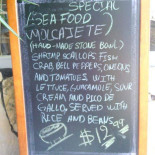 SPECIAL
(SEA FOOD
MOLCAJETE)
(HAND-MADE STONE BOWL)
SHRIMP SCALLOPS, FISH
CRAB BELL PEPPERS, ONIONS
AND TOMATOES WITH
LETTUCE, GUACAMOLE, SOUR
CREAM AND PICO DE
GALLO, SERVED WITH
RICE AND BEANS
$12.99